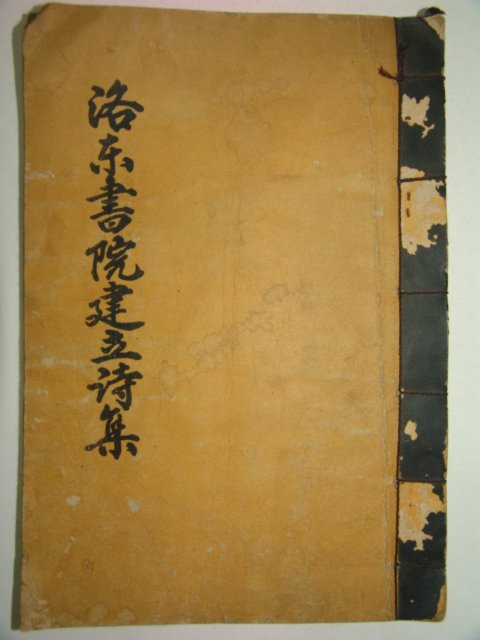 洛東書院建立詩集